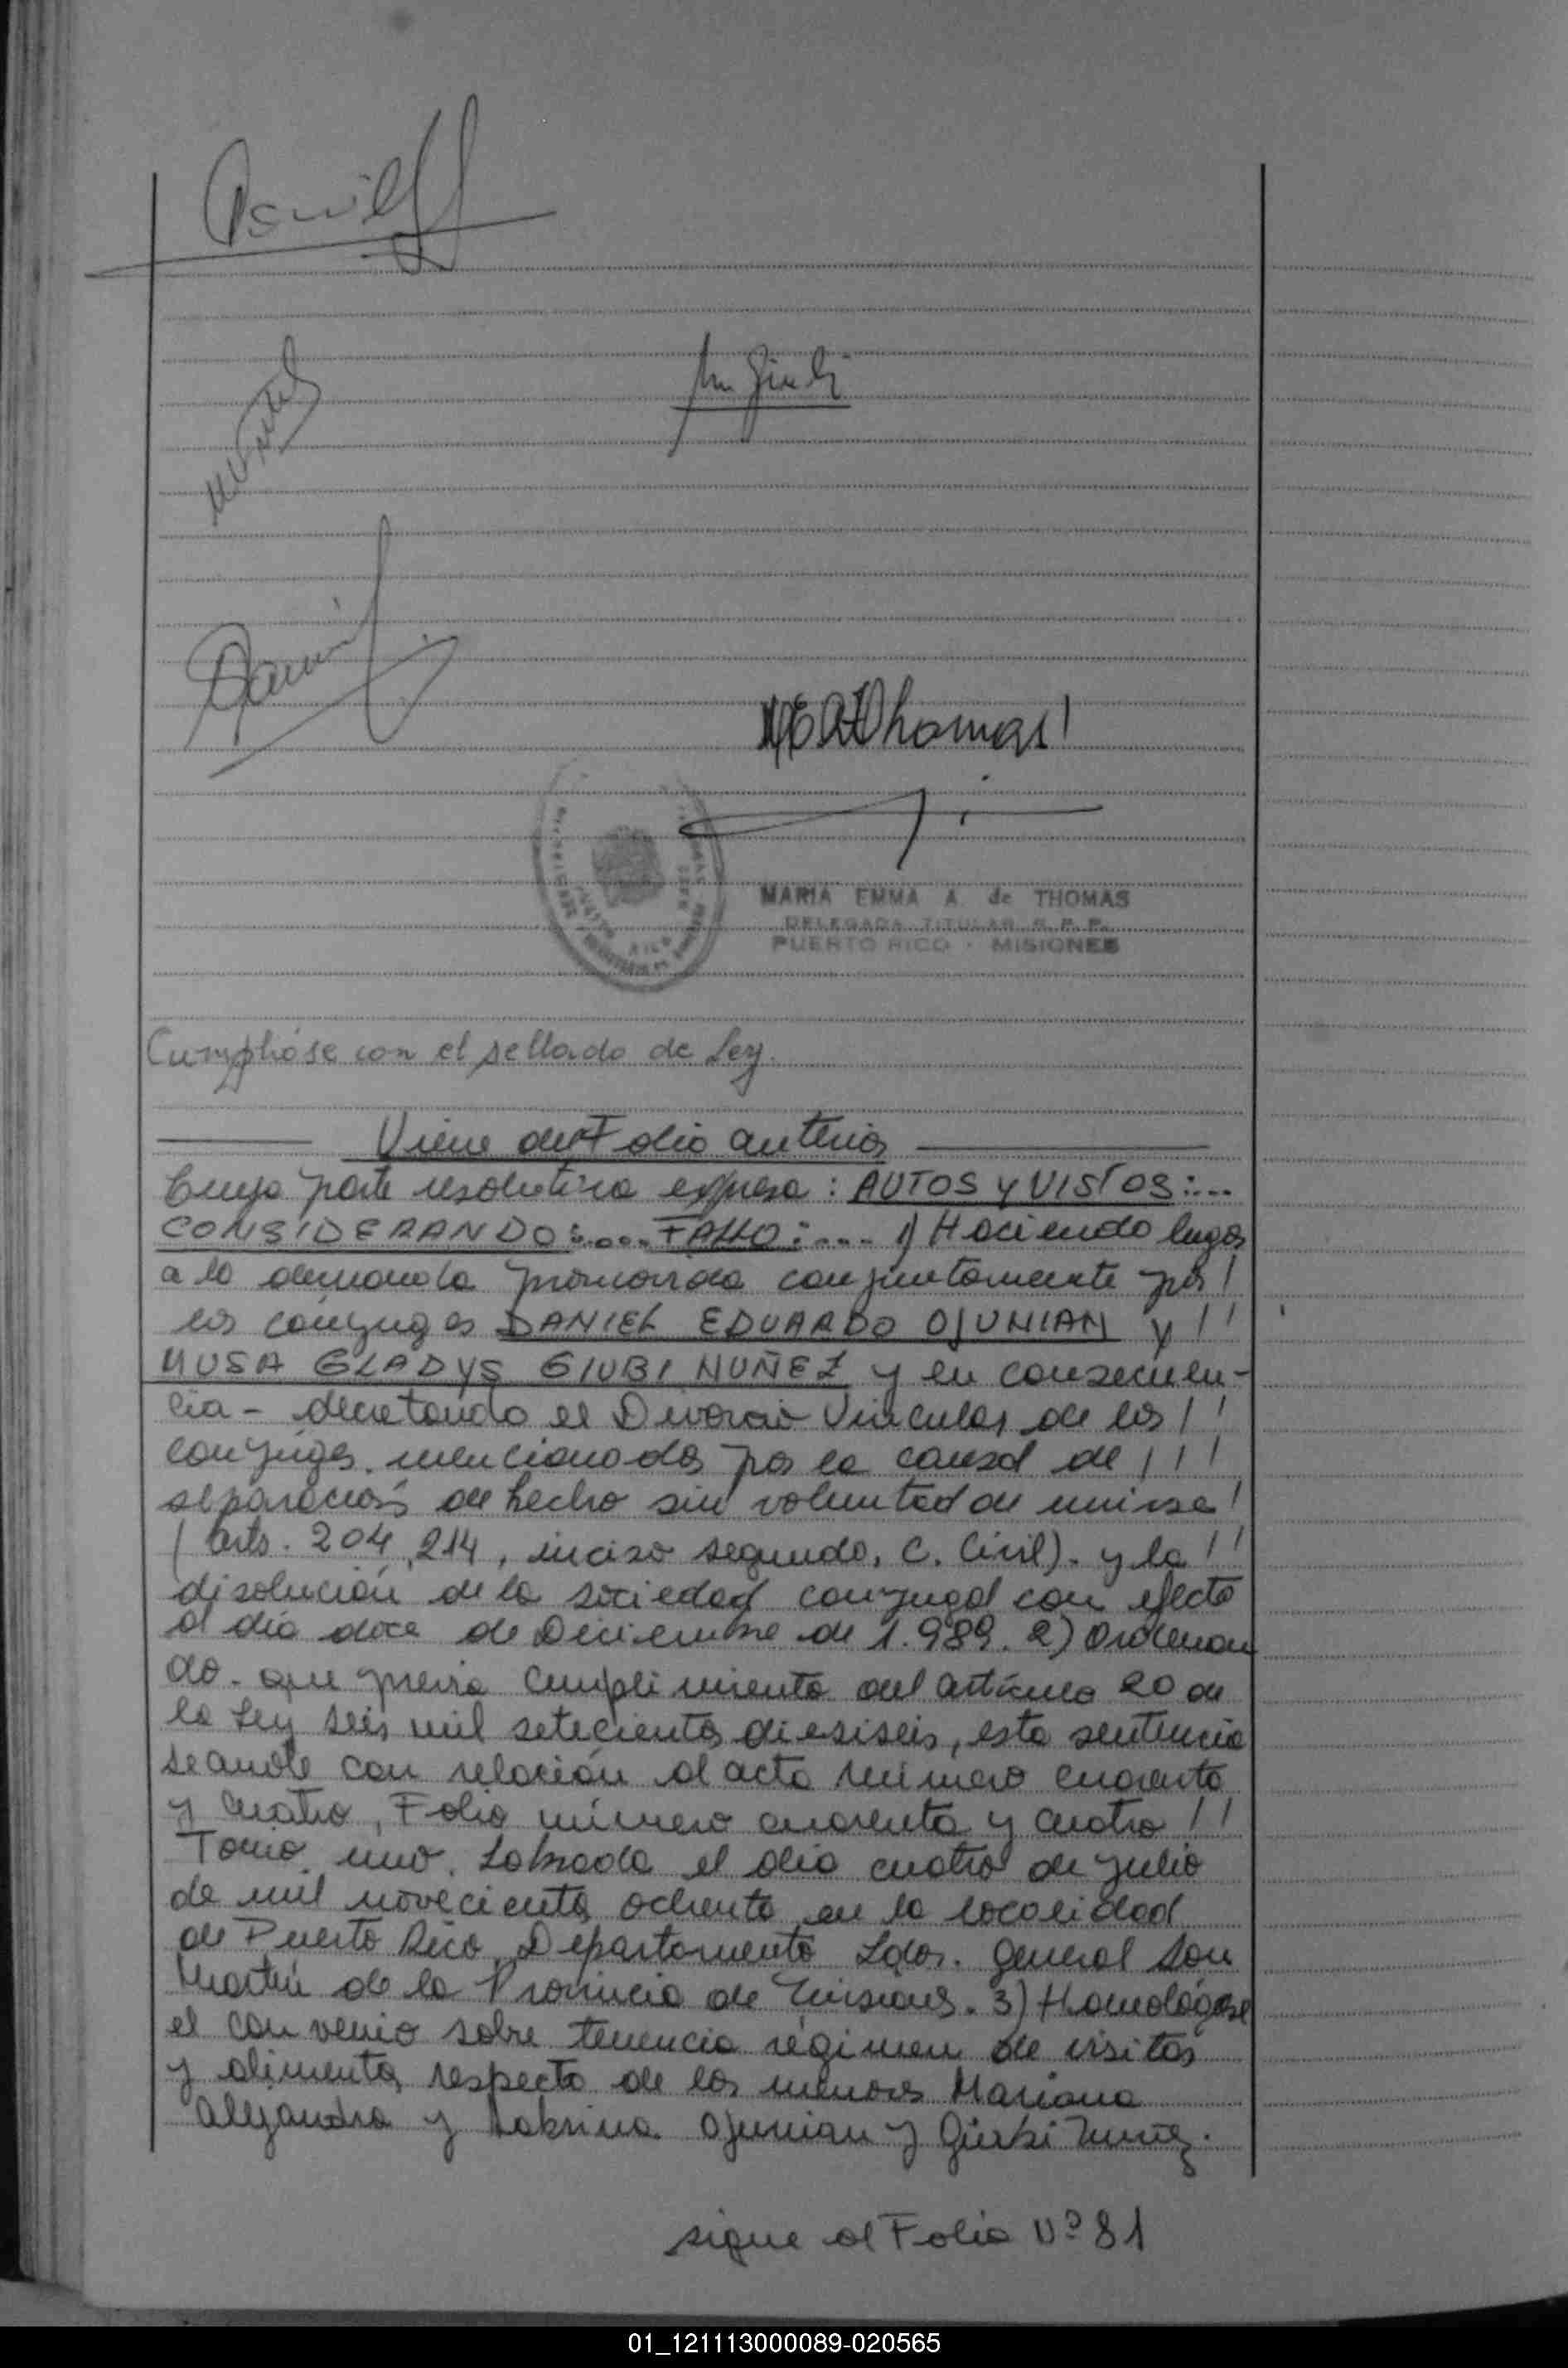 MARIA EMMA A. de THOMAS
DELEGADA TITULAR R. P. P.
PUERTO RICO - MISIONES
Cumplióse con el sellado de Ley.
Viene del Folio anterior
Cuya parte resolutiva expresa: AUTOS y VISTOS:...
CONSIDERANDO:.... FALLO:.... 1) Haciendo lugar
a la demanda promovida conjuntamente por !
los cónyuges DANIEL EDUARDO OJUNIAN y !!
MUSA GLADYS GIUBI NUÑEZ y en consecuen-
cia - decretando el Divorcio Vincular de los !!
conyuges mencionados por la causal de !!!
separación de hecho sin voluntad de unirse !
(arts. 204, 214, inciso segundo, C. Civil). y la !!
disolución de la sociedad conyugal con efecto
al día doce de Diciembre de 1.989. 2) Ordenan
do - que previo cumplimiento del artículo 20 de
la Ley seis mil setecientos dieziseis, esta sentencia
se anote con relación al acta número cuarenta
y cuatro, Folio número cuarenta y cuatro !!
Tomo uno. Labrada el día cuatro de julio
de mil novecientos ochenta en la localidad
de Puerto Rico Departamento Ldor. General San
Martín de la Provincia de Misiones. 3) Homológase
el convenio sobre tenencia régimen de visitas
y alimentos respecto de los menores Mariana
Alejandra y Sabrina Ojunian y Giubi Nuñez.
sigue al Folio Nº 81
01_121113000089-020565